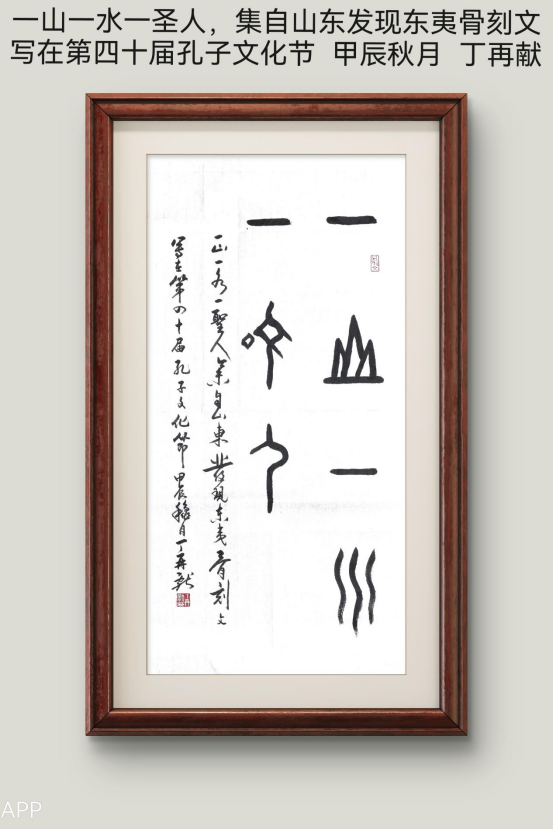 一山一水一圣人，集自山东发现东夷骨刻文
写在第四十届孔子文化节 甲辰秋月 丁再献
一山一水
一聖人
一山一水一聖人集自山東發現东夷骨刻文
写在第四十届孔子文化节甲辰秋月丁再献
APP